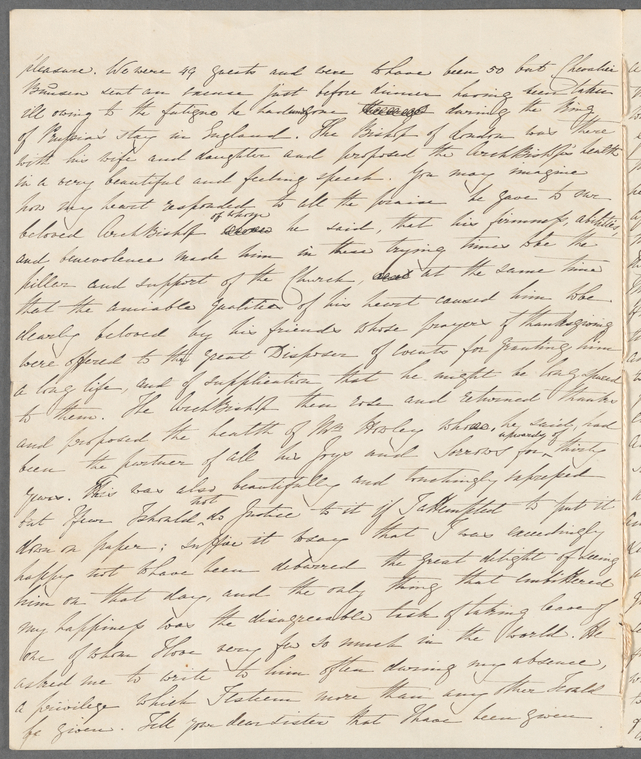 pleasure. We were 49 guests and were to have been 50 but Chevalier
Bunsen sent an excuse just before dinner having been taken
ill owing to the fatigue he had undergone during the King
of Prussia's stay in England. The Bishop of London was there
with his wife and daughter and proposed the ArchBishop's health
in a very beautiful and feeling speech. You may imagine
how my heart responded to all the praise he gave to our
beloved ArchBishop of whom he said, that his firmness, abilities,
and benevolence made him in these trying times to be the
pillar and support of the Church, at the same time
that the amiable qualities of his heart caused him to be
dearly beloved by his friends whose prayers of thanksgiving
were offered to the great Disposer of events for granting him
a long life, and of supplication that he might be long spared
to them. The ArchBishop then rose and returned thanks
and proposed the health of Mrs Howley who, he said, had
been the partner of all his Joys and Sorrows for upwards of thirty
years. This was also beautifully and touchingly expressed
but I fear I should not do Justice to it if I attempted to put it
down on paper; suffice it to say that I was exceedingly
happy not to have been debarred the great delight of seeing
him on that day, and the only thing that embittered
my happiness was the disagreeable task of taking leave of
one of whom I love very few so much in the world. He
asked me to write to him often during my absence,
a privilege which I esteem more than any other I could
be given. Tell your dear sister that I have been given